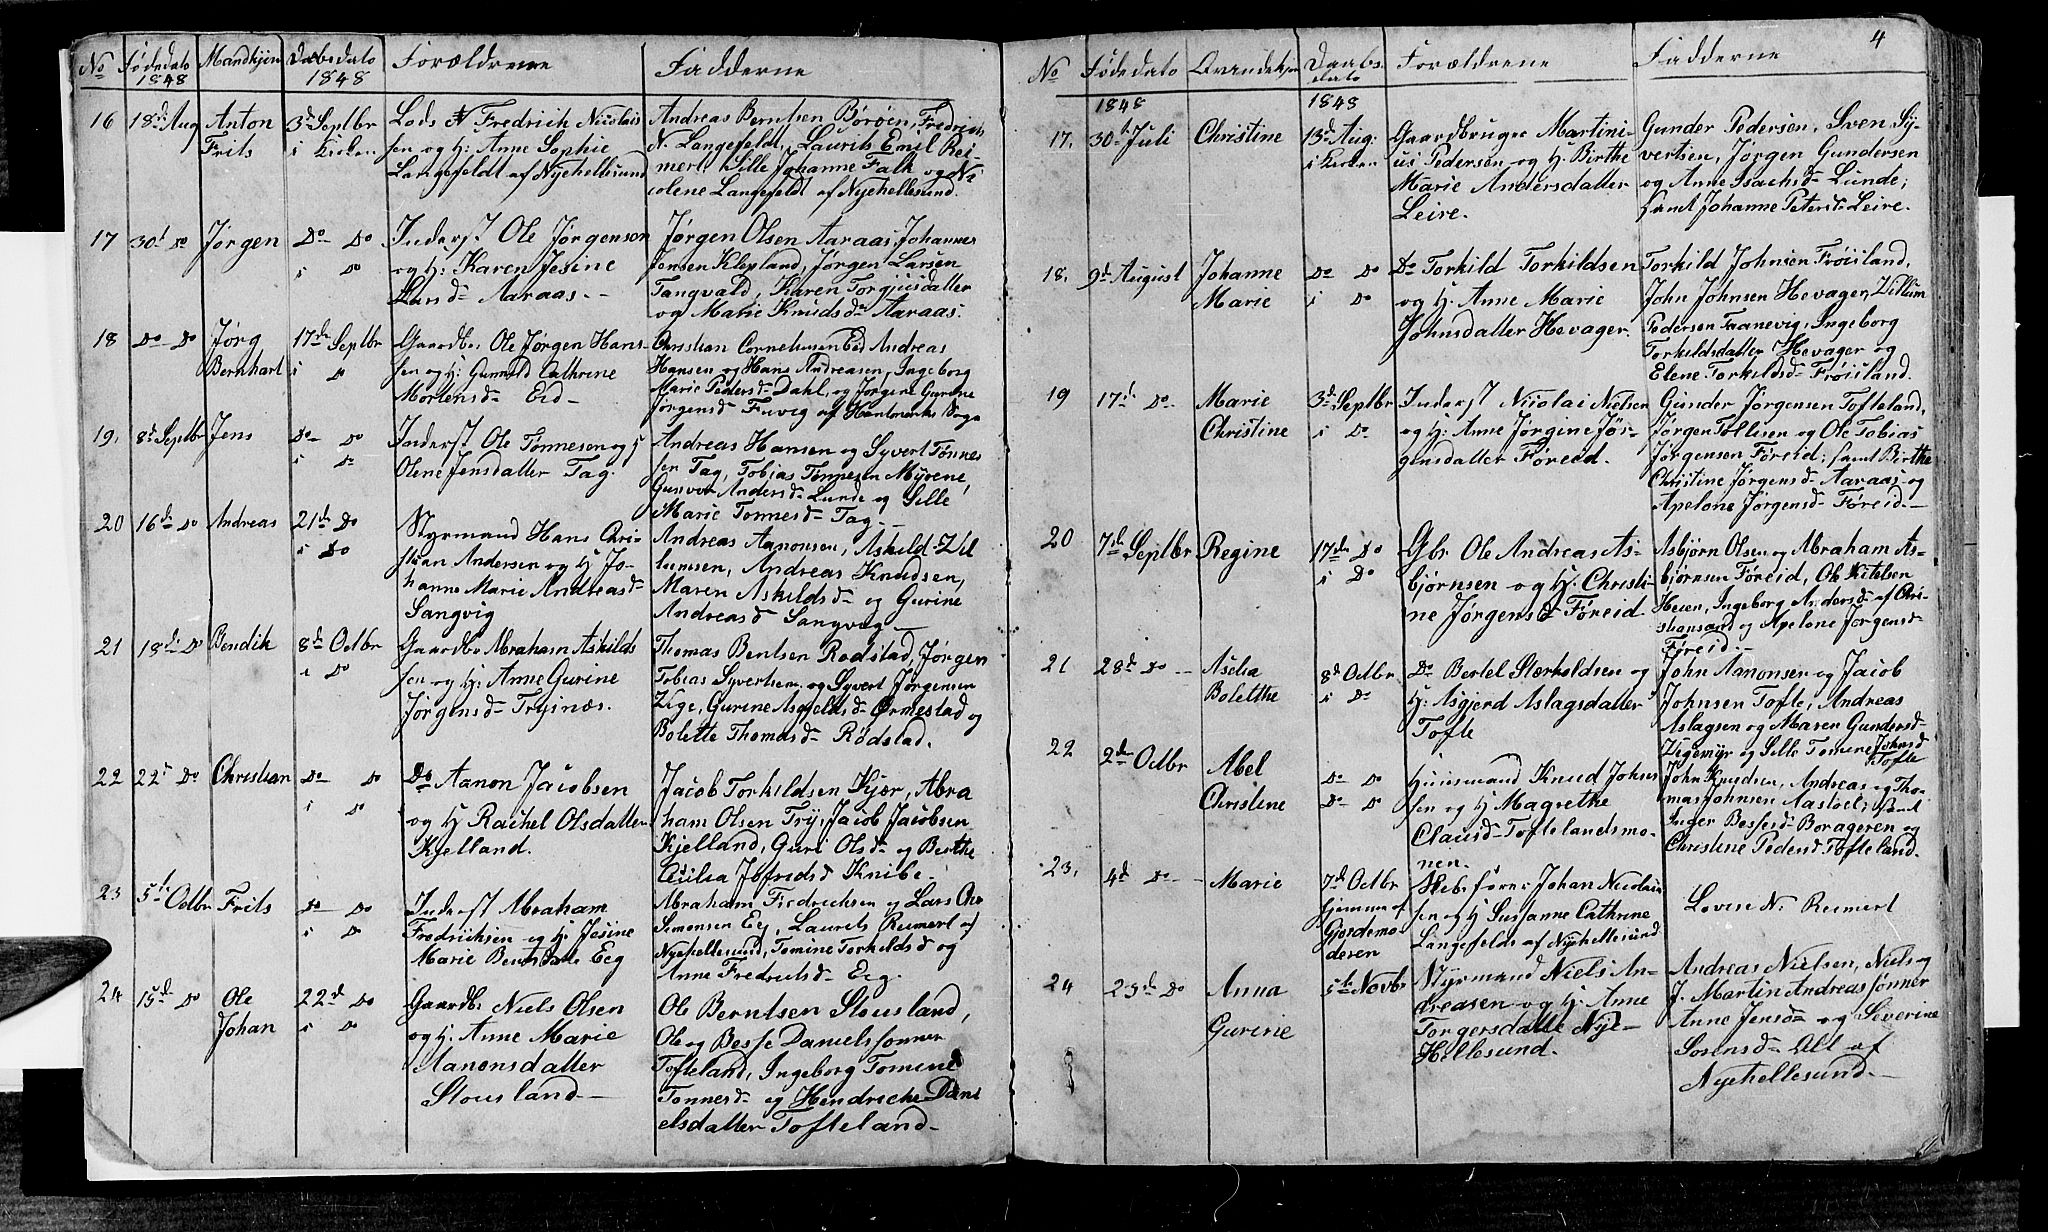 No Fødedato 1848 Mandkjøn Daabsdato 1848 Forældrene Fadderne
16 18de Aug Anton Frits 3de Septbr i Kirken
Lods N Fredrich Nicolai
sen og H: Anne Sophie
Langefeldt af Nyehellesund
Andreas Berntsen Børøen, Fredrich
N. Langefeldt, Laurits Emil Rei-
mert, Sille Johanne Falk og Ni
colene Langefeldt af Nyehellesund.
17 30t Do Jørgen Do Do i Do
Inderst Ole Jørgensen
og H: Karen Jesine
Aaraas.
Jørgen Olsen Aaraas, Johannes
Jensen Klepland, Jørgen Larsen
Tangvald, Karen Torgjusdatter
og Marie Knudsd. Aaraas.
18 Do Do Jørg Bernhart 17de Septbr i Do
Gaardbr Ole Jørgen Hans-
sen og H: Gunnild Cathrine
Mortensd. Eid
Christian Corneliussen Eid Andreas
Hansen og Hans Andreasen, Ingeborg
Marie Pedersd. Dahl, og Jørgine Gurine
Jørgensd.
19. 8de Septbr Jens Do Do i Do
Inderst Ole Tønnesen og H
Olene Jensdatter Tag.
Andreas Hansen og Syvert Tønnes
sen Tag, Tobias Tønnesen Myrene,
Gunver Andersd. Lunde og Sille
Marie Tønnesd. Tag
20 16de Do Andreas 21de Do i Do
Styrmand Hans Chri-
stian Andersen og H Jo-
hanne Marie Andreasd.
Langvig
Andreas Aanonsen, Askild Vil
lumsen, Andreas Knudsen,
Maren Askildsd. og Gurine
Andreasd. Langvig
21 18de Do Bendik 8de Octbr i Do
Gaardbr Abraham Askilds
sen og H: Anne Gurine
Jørgensd. Trysnæs.
Thomas Bentsen Rødstad, Jørgen
Tobias Syvertsen og Syvert Jørgensen
Vige, Gurine Asgjeldsd. Ørmestad og
Bolette Thomasd. Rødstad.
22 22de Do Christian Do Do i Do
Do Aanon Jacobsen
og H Rachel Olsdatter
Kjelland.
Jacob Torkildsen Kjær, Abra
ham Olsen Try, Jacob Jacobsen
Kjelland, Guri Olsd. og Berthe
Cecilia Jøfredsd. Knibe.
23 5te Octbr Frits Do Do i Do
Inderst Abraham
Fredriksen og H: Jesine
Marie Eeg
Abraham Fredrichsen og Lars Chr
Simonsen Eeg, Laurets Reimert af
Nyehellesund, Tomine Torkildsd og
Anne Fredriksd. Eeg.
24 15de Do Ole Johan 22de Do i Do
Gaardbr Niels Olsen
og H: Anne Marie
Aanonsdatter
Stousland
Ole Berntsen Stousland,
Ole og Besse Danielssønner
Tofteland, Ingeborg Tomine
Tønnesd. og Hendricke Dani
elsdatter Tofteland
4
No Fødedato 1848 Qvindekjøn Daabsdato 1848 Forældrene Fadderne
17. 30te Juli Christine 13de Aug: i Kirken
Gaardbruger Martini-
us Pedersen og H: Birthe
Marie Andersdatter
Leire.
Gunder Pedersen, Sven Sy-
vertsen, Jørgen Gundersen
og Anne Isachsd. Lunde;
samt Johanne Petersd. Leire.
18. 9de August Johanne Marie Do Do i Do
Do Torkild Torkildsen
og H: Anne Marie
Johnsdatter Hevager.
Torkild Johnsen Frøisland,
John Johnsen Hevager, Villum
Pedersen Faanevig, Ingeborg
Torkildsdatter Hevager og
Elene Torkildsd. Frøisland.
19 17de Do Marie Christine 3de Septbr i Do
Inderst Nicolai Nielsen
og H: Anne Jørgine Jør-
gensdatter Føreid.
Gunder Jørgensen Tofteland,
Jørgen Tollisen og Ole Tobias
Jørgensen Føreid; samt Birthe
Christine Jørgensd. Aaraas og
Apelone Jørgensd. Føreid.
20 7de Septbr Regine 17de Do i Do
Gbr Ole Andreas As-
bjørnsen og H: Christi-
ne Jørgensd. Føreid
Asbjørn Olsen og Abraham As-
bjørnsen Føreid, Ole Kitelsen
Heien, Ingeborg Andersd. af Chri-
stianssand og Apelone Jørgensd.
Føreid.
21 28de Do Aselia Bolethe 8de Octbr i Do
Do Bertel Stærkoldsen og
H: Asgjerd Aslagsdatter
Tofte
John Aanonsen og Jacob
Johnsen Tofte, Andreas
Aslagsen og Maren Gundersd.
Vigemyr og Sille Tomine Johnsd.
Tofte
22 2de Octbr Abel Christine Do Do Do Do
Huusmand Knud Johns
sen og H Magrethe
Clausd. Toftelandsmo-
nen.
John Knudsen, Andreas og Tho-
mas Johnsen Aastøel; samt
Inger Bessesd. Borageren og
Christine Tofteland.
23. 4de Do Marie 7de Octbr hjemme af Gjordemoderen
Skibsfører Johan Nicolai
sen og H Susanne Cathrine
Langefeldt af Nyehellesund
Lovise N. Reimert
24 23de Do Anna Gurine 5te Novbr
Styrmand Niels An-
dreasen og H: Anne
Torgersdatter Nye-
Hellesund.
Andreas Nielsen, Niels og
J. Martin Andreassønner
Anne Jensd. og Severine
Sørensd. All af
Nyehellesund